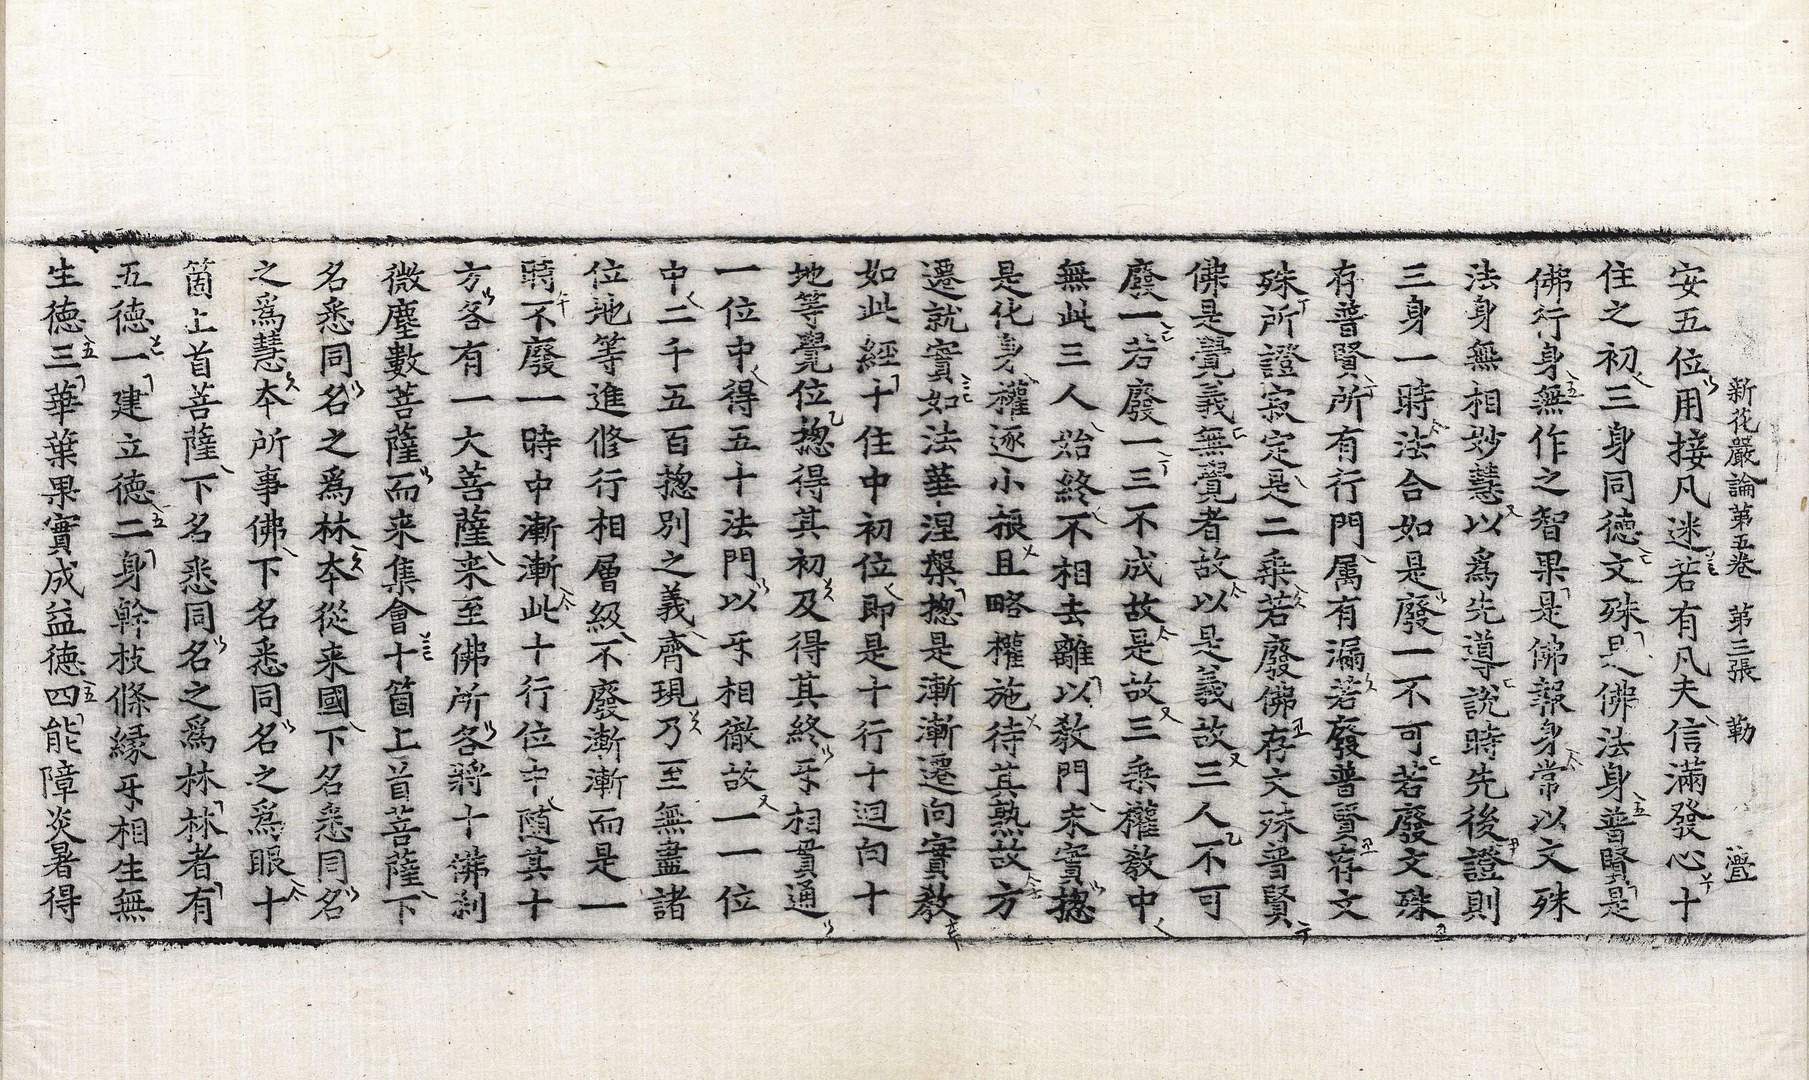 新花嚴論第五卷 第三張 勒 灋
安五位用接凡迷若有凡夫信滿發心十
住之初三身同德文殊是佛法身普賢是
佛行身無作之智果是佛報身常以文殊
法身無相妙慧以爲先導說時先後證則
三身一時法合如是廢一不可若廢文殊
存普賢所有行門属有漏若廢普賢存文
殊所證寂定是二乘若廢佛存文殊普賢
佛是覺義無覺者故以是義故三人不可
廢一若廢一三不成故是故三乘權教中
無此三人始終不相去離以教門未實揔
是化身權逐小根且略權施待其熟故方
遷就實如法華涅槃揔是漸漸遷向實教
如此經十住中初位即是十行十迴向十
地等覺位揔得其初及得其終㸦相貫通
一位中得五十法門以㸦相徹故一一位
中二千五百揔別之義齊現乃至無盡諸
位地等進修行相層級不廢漸漸而是一
時不廢一時中漸漸此十行位中随其十
方各有一大菩薩来至佛所各將十佛刹
微塵數菩薩而来集會十箇上首菩薩下
名悉同名之爲林夲從来國下名悉同名
之爲慧夲所事佛下名悉同名之爲眼十
箇上首菩薩下名悉同名之爲林林者有
五德一建立德二身幹枝條縁㸦相生無
生德三華葉果實成益德四能障炎暑得